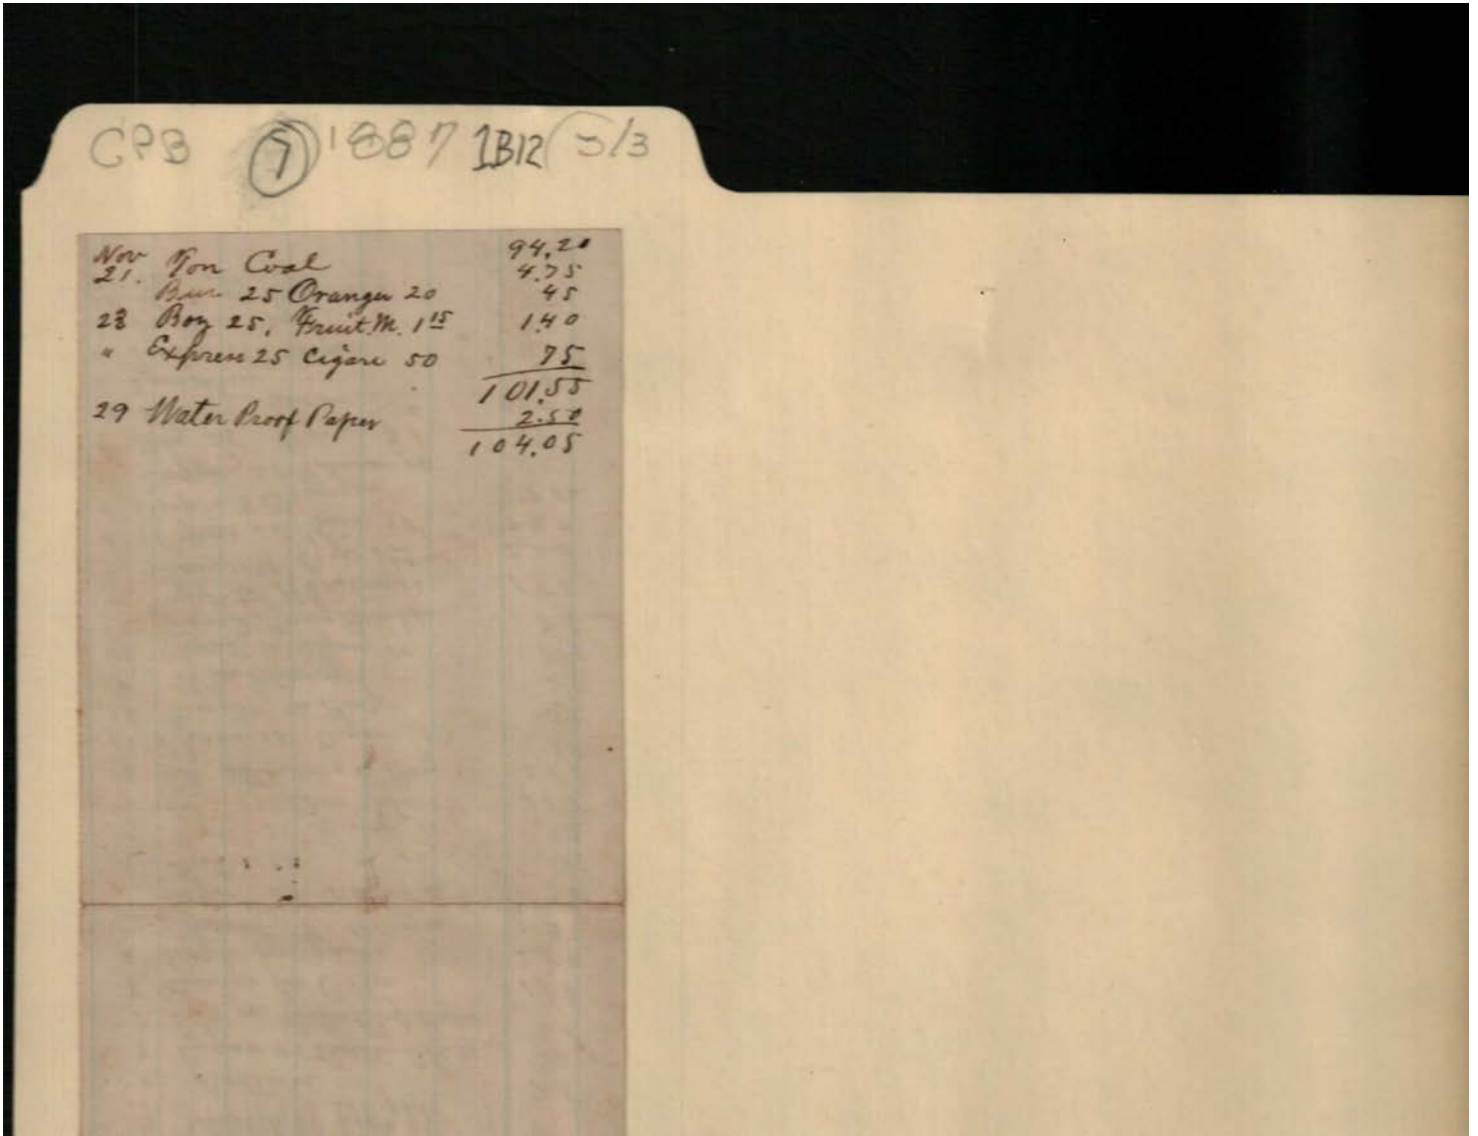 CPB 1887 1B12 5/3
94.20
Nov 21. Ton Coal 4.75
25 Oranges 20 45
28 Boy 25, Fruit.M. 1 15 1.40
" Express 25 Cigars 50 75
101.55
29 Water Proof Paper 2.50
104.05